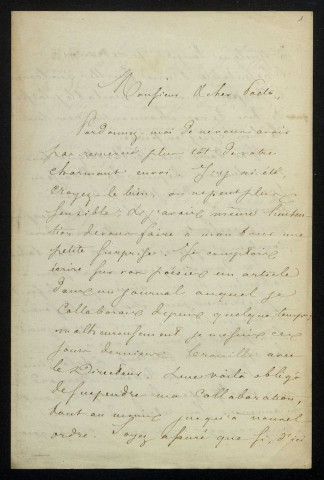 Monsieur & cher Poète,
Pardonnez moi de ne vous avoir
pas remercié plus tôt de votre
charmant envoi. J'y ai été,
croyez le bien, on ne peut plus
sensible. Et j'avais même l'inten-
tion de vous faire à mon tour une
petite surprise. Je comptais
écrire sur vos poésies un article
dans un journal auquel je
collaborais depuis quelque temps,
malheureusement je me suis ces
jours derniers brouillé avec
le Directeur. Me voilà obligé
de suspendre ma collaboration,
tout au moins jusqu'à nouvel
ordre. Soyez assuré que si, d'ici